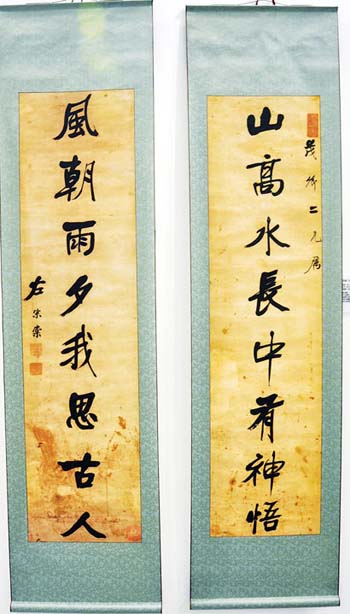 二兄屬
山高水長中有神悟
風朝雨夕我思古人
左宗棠